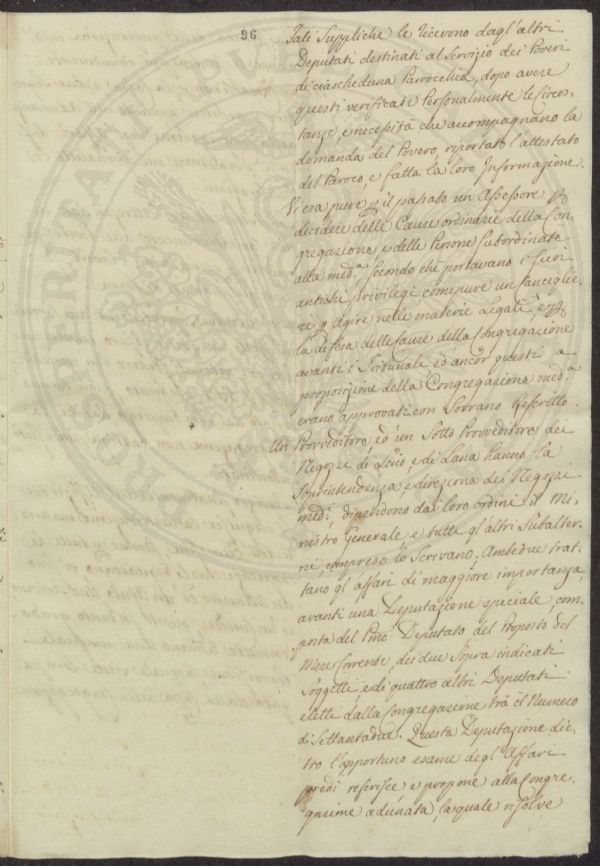 96
Tali Suppliche le ricevono dagl'altri
Deputati destinati al Servizio dei Poveri
di ciascheduna Parrocchia, dopo avere
questi verificate Personalmente le Circos-
tanze, e necessità che accompagnano la
domanda del Povero, riportato l'attestato
del Paroco, e fatta la loro Informazione.
Vi era pure p il passato un Assessore p
decidere delle Cause ordinarie della Con-
gregazione, e delle Persone Subordinate
alla med.ª secondo che portavano i suoi
antichi privilegi come pure un Canceglie-
re p agire nelle materie Legali, e p
la difesa delle Cause della Congregazione
avanti i Tribunali ed ancor questi a
proposizione della Congregazione med.ª
erano approvati con Sovrano Rescritto.
Un Provveditore, ed un Sotto Provveditore dei
Negozzi di e di Lana hanno la
Soprintendenza, e direzione dei Negozzi
med.i, dipendono dai loro ordini il Mi-
nistro Generale, e tutti gl'altri Subalter-
ni, compreso lo Scrivano. Ambedue trat-
tano gl'affari di maggiore importanza,
avanti una Deputazione speciale, com-
posta del Deputato del Proposto del
Mese Corrente, dei due Sopra indicati
Soggetti e di quattro altri Deputati
eletti dalla Congregazione trà il Numero
di Settantadue. Questa Deputazione die-
tro l'opportuno esame degl'Affari
predi riferisce e propone alla Congre-
gazione adunata, la quale risolve
PRO VERITATE